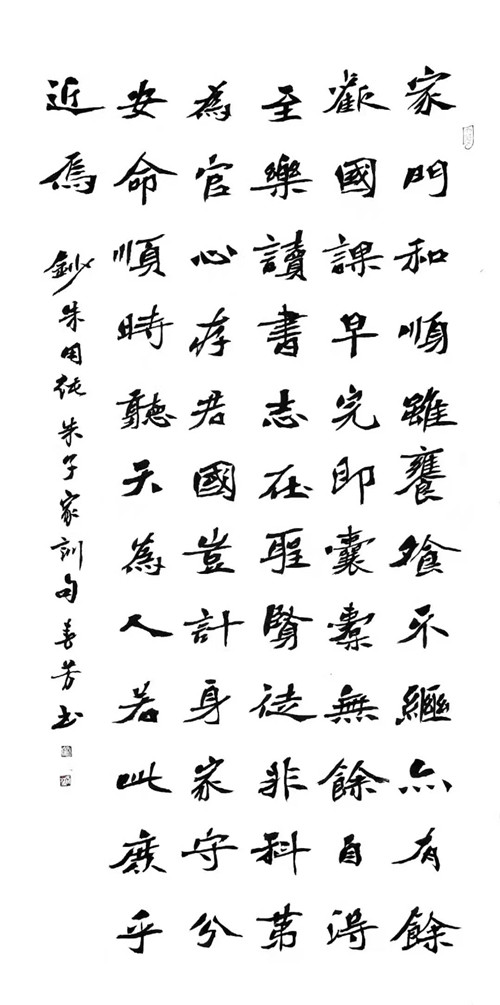 家門和順雖饔飧不繼亦有餘
歡國課早完即囊橐無餘自得
至樂讀書志在聖賢徒非科第
為官心存君國豈計身家守分
安命順時聽天為人若此庶乎
近焉
鈔朱用純朱子家訓句善芳书